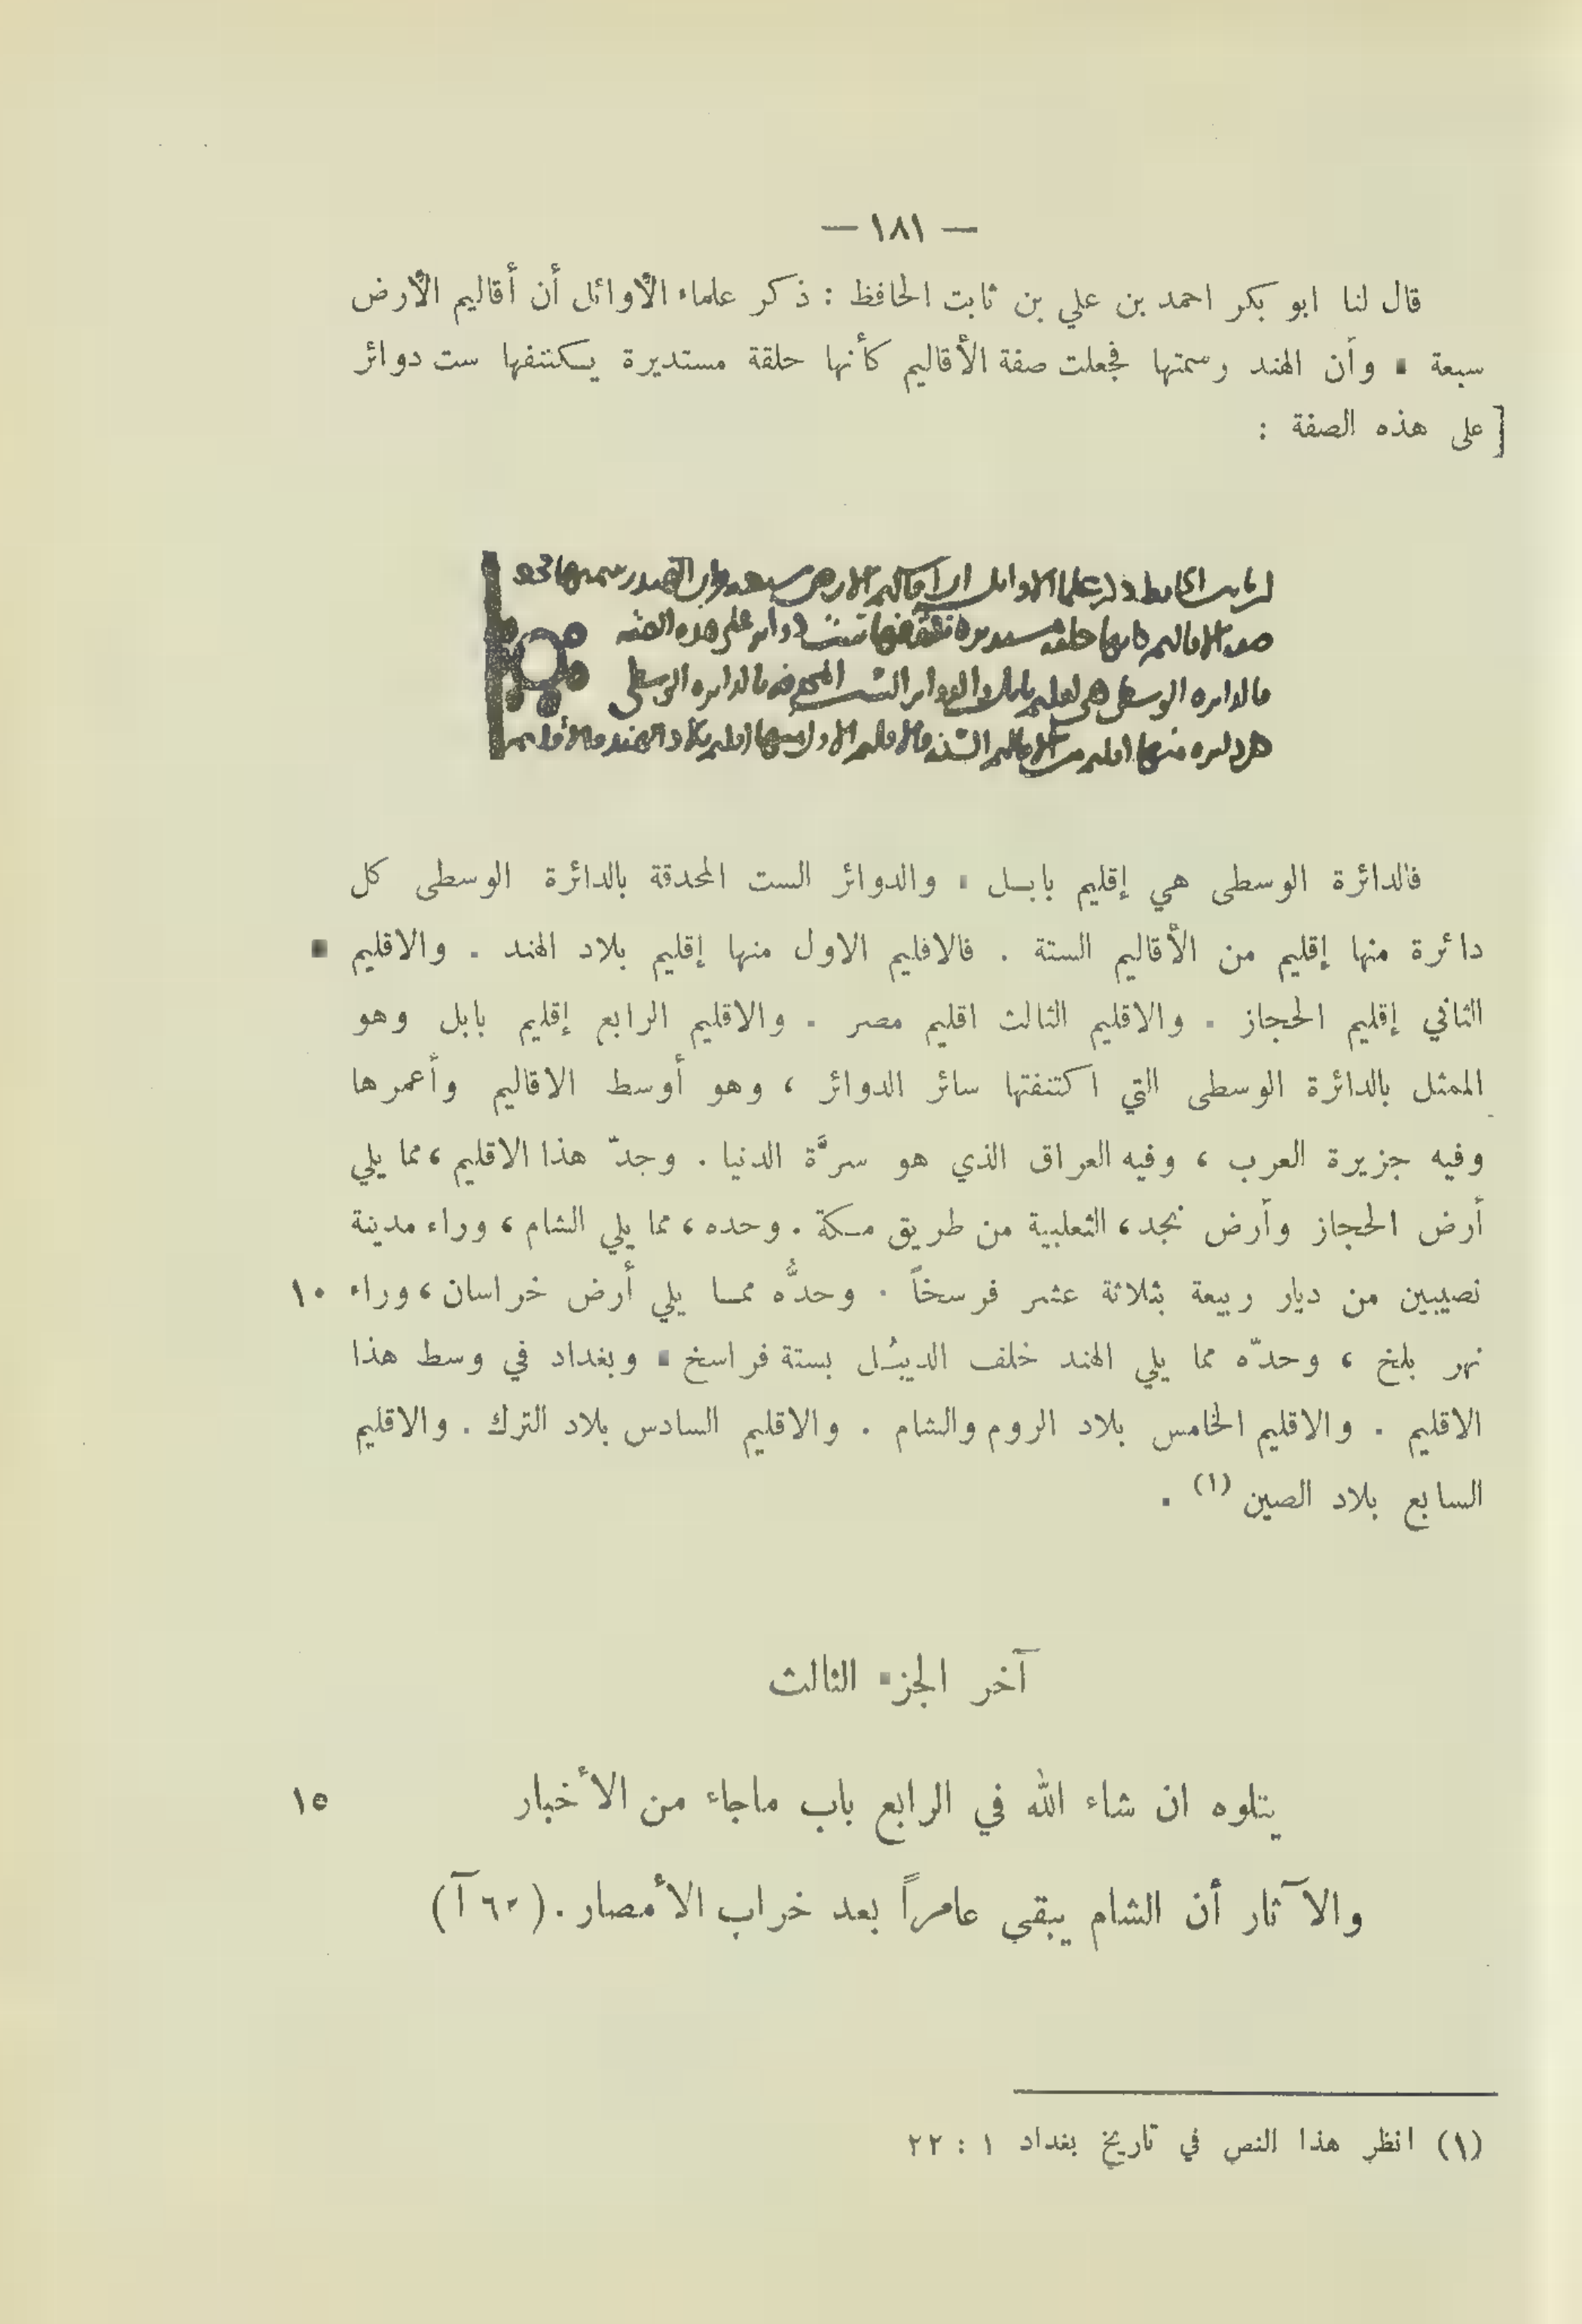 — ١٨١ —
قال لنا ابو بكر احمد بن علي بن ثابت الحافظ : ذكر علماء الأوائل أن أقاليم الأرض
سبعة . وأن الهند رسمتها فجعلت صفة الأقاليم كأنها حلقة مستديرة يكتنفها ست دوائر
[على هذه الصفة :
علما الاوايل
صفه الاقاليم كانها حلقه مستديره على هذه الصفه
فالدايره الوسطى هي اقليم بابل فه بالدايره الوسطى
منها اقليم من الاقاليم الستة فالاقليم الاول منها اقليم بلاد الهند والاقليم
فالدائرة الوسطى هي إقليم بابـل . والدوائر الست المحدقة بالدائرة الوسطى كل
دائرة منها إقليم من الأقاليم الستة . فالاقليم الاول منها إقليم بلاد الهند . والاقليم
الثاني إقليم الحجاز . والاقليم الثالث اقليم مصر . والاقليم الرابع إقليم بابل وهو
الممثل بالدائرة الوسطى التي اكتنفتها سائر الدوائر ، وهو أوسط الاقاليم وأعمرها
وفيه جزيرة العرب ، وفيه العراق الذي هو سرَّة الدنيا . وجدّ هذا الاقليم ، مما يلي
أرض الحجاز وأرض نجد ، الثعلبية من طريق مكة . وحده ، مما يلي الشام ، وراء مدينة
نصيبين من ديار ربيعة بثلاثة عشر فرسخاً . وحدُّه ممـا يلي أرض خراسان ، وراء ١٠
نهر بلخ ، وحدّه مما يلي الهند خلف الديبُـل بستة فراسخ . وبغداد في وسط هذا
الاقليم . والاقليم الخامس بلاد الروم والشام . والاقليم السادس بلاد الترك . والاقليم
السابع بلاد الصين (١) .
آخر الجزء الثالث
يتلوه ان شاء الله في الرابع باب ماجاء من الأخبار ١٥
والآثار أن الشام يبقى عامراً بعد خراب الأمصار .
(١) انظر هذا النص في تاريخ بغداد ١ : ٢٢